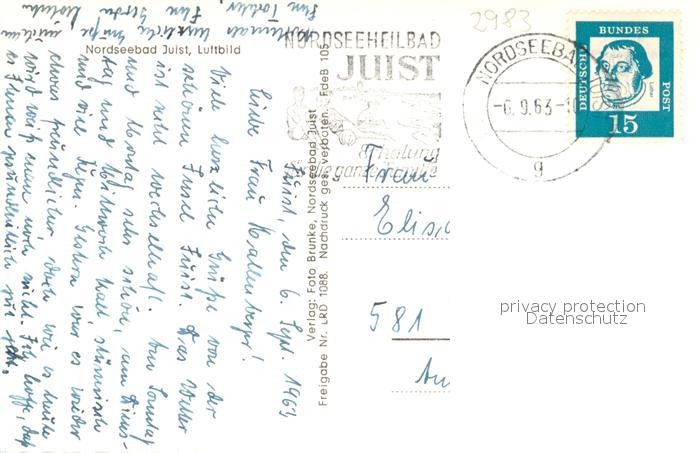 Nordseebad Juist, Luftbild
Juist, den 6. Sept. 1963
Liebe Frau
Viele herzliche Grüße von der
schönen Insel Juist. Das Wetter
ist recht wechselhaft. Am Sonntag
und Montag sehr schön, am Diens-
tag und Mittwoch kalt, stürmisch
und viel Regen. Gestern war es wieder
etwas freundlicher, doch wie es heute
wird weiß man noch nicht. Ich hoffe, daß
es Ihnen gesundheitlich gut geht.
Verlag: Foto Brunke, Nordseebad Juist
Freigabe Nr. LRD 1088. Nachdruck ges. verboten. FdeB 105
NORDSEEHEILBAD
JUIST
Erholung
für die ganze Familie
2983
NORDSEEBAD JUIST
-6.9.63-1
g
DEUTSCHE
BUNDES
POST
Luther
15
Frau
Elis
581
privacy protection
Datenschutz